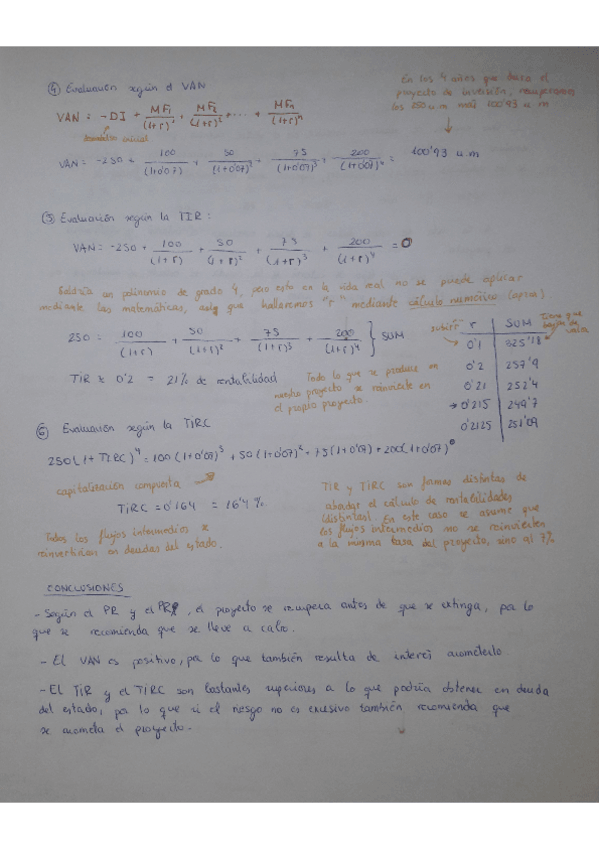 ④ Evaluación según el VAN
VAN = -DI + MF₁/(1+r)¹ + MF₂/(1+r)² + ... + MFn/(1+r)ⁿ
desembolso inicial
En los 4 años que dura el
proyecto de inversión, recuperamos
los 250 u.m más 100'93 u.m
VAN = -250 + 100/(1+0'07) + 50/(1+0'07)² + 75/(1+0'07)³ + 200/(1+0'07)⁴ = 100'93 u.m
⑤ Evaluación según la TIR:
VAN = -250 + 100/(1+r) + 50/(1+r)² + 75/(1+r)³ + 200/(1+r)⁴ = 0
Saldría un polinomio de grado 4, pero esto en la vida real no se puede aplicar
mediante las matemáticas, así que hallaremos "r" mediante cálculo numérico (aprox)
250 = 100/(1+r) + 50/(1+r)² + 75/(1+r)³ + 200/(1+r)⁴ } SUM
TIR ≈ 0'2 = 21% de rentabilidad
Todo lo que se produce en
nuestro proyecto se reinvierte en
el propio proyecto.
subir "r"
Tiene que
bajar de
valor
r SUM
0'1 325'18
0'2 257'9
0'21 252'4
→ 0'215 249'7
0'2125 251'09
⑥ Evaluación según la TIRC
250(1+TIRC)⁴ = 100(1+0'07)³ + 50(1+0'07)² + 75(1+0'07) + 200(1+0'07)⁰
capitalización compuesta
TIRC = 0'164 = 16'4%
Todos los flujos intermedios se
reinvertirían en deudas del estado.
TIR y TIRC son formas distintas de
abordar el cálculo de rentabilidades
(distintas). En este caso se asume que
los flujos intermedios no se reinvierten
a la misma tasa del proyecto, sino al 7%
CONCLUSIONES
- Según el PR y el PR, el proyecto se recupera antes de que se extinga, por lo
que se recomienda que se lleve a cabo.
- El VAN es positivo, por lo que también resulta de interés acometerlo
- El TIR y el TIRC son bastantes superiores a lo que podría obtener en deuda
del estado, por lo que si el riesgo no es excesivo también recomienda que
se acometa el proyecto.